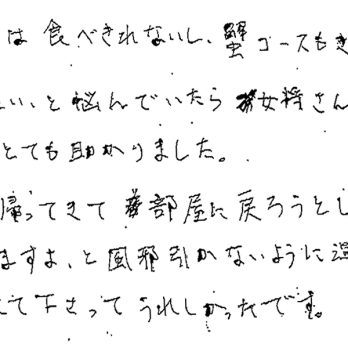 は食べきれないし、蟹コースもき
い、と悩んでいたら女将さん
とても助かりました。
帰ってきて部屋に戻ろうとし
ますよ、と風邪引かないように温
えて下さってうれしかったです。